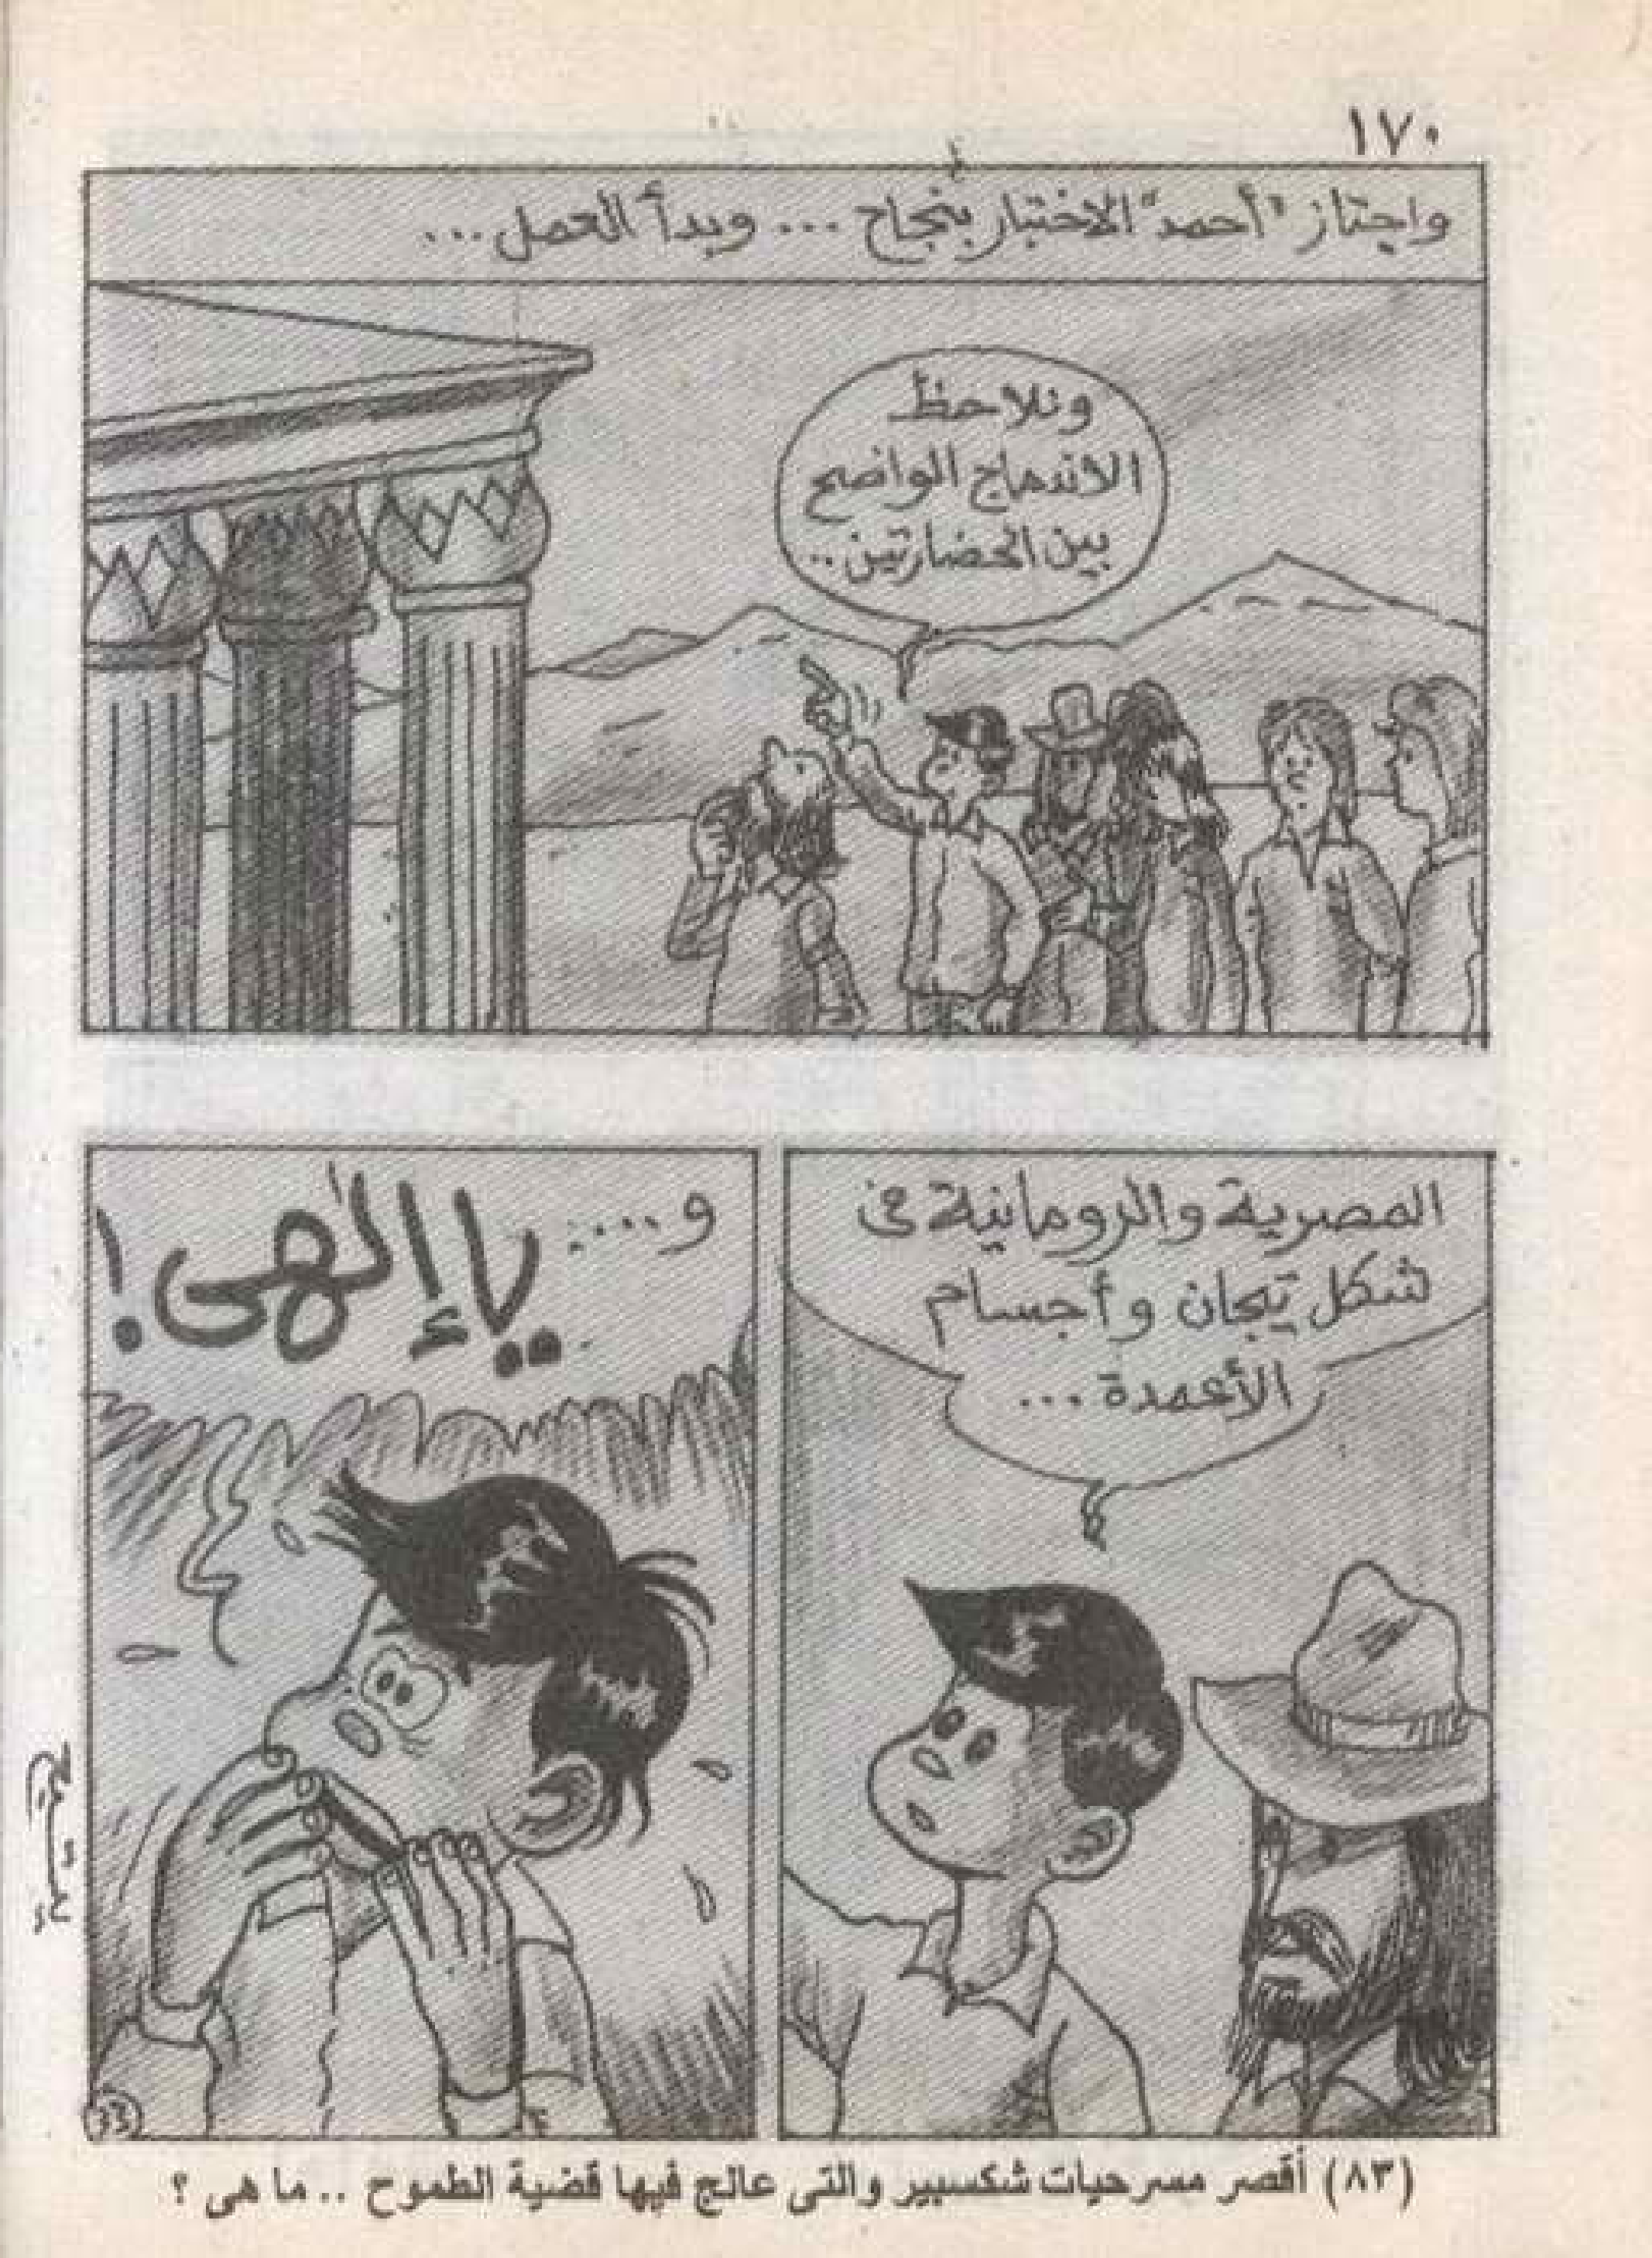 ١٧٠
واجتاز "أحمد" الاختبار بنجاح ... وبدأ العمل ...
ونلاحظ
الاندماج الواضح
بين الحضارتين ..
المصرية والرومانية فى
شكل تيجان وأجسام
الأعمدة ...
و....
يا إلهى !
(٨٣) أقصر مسرحيات شكسبير والتى عالج فيها قضية الطموح .. ما هى ؟